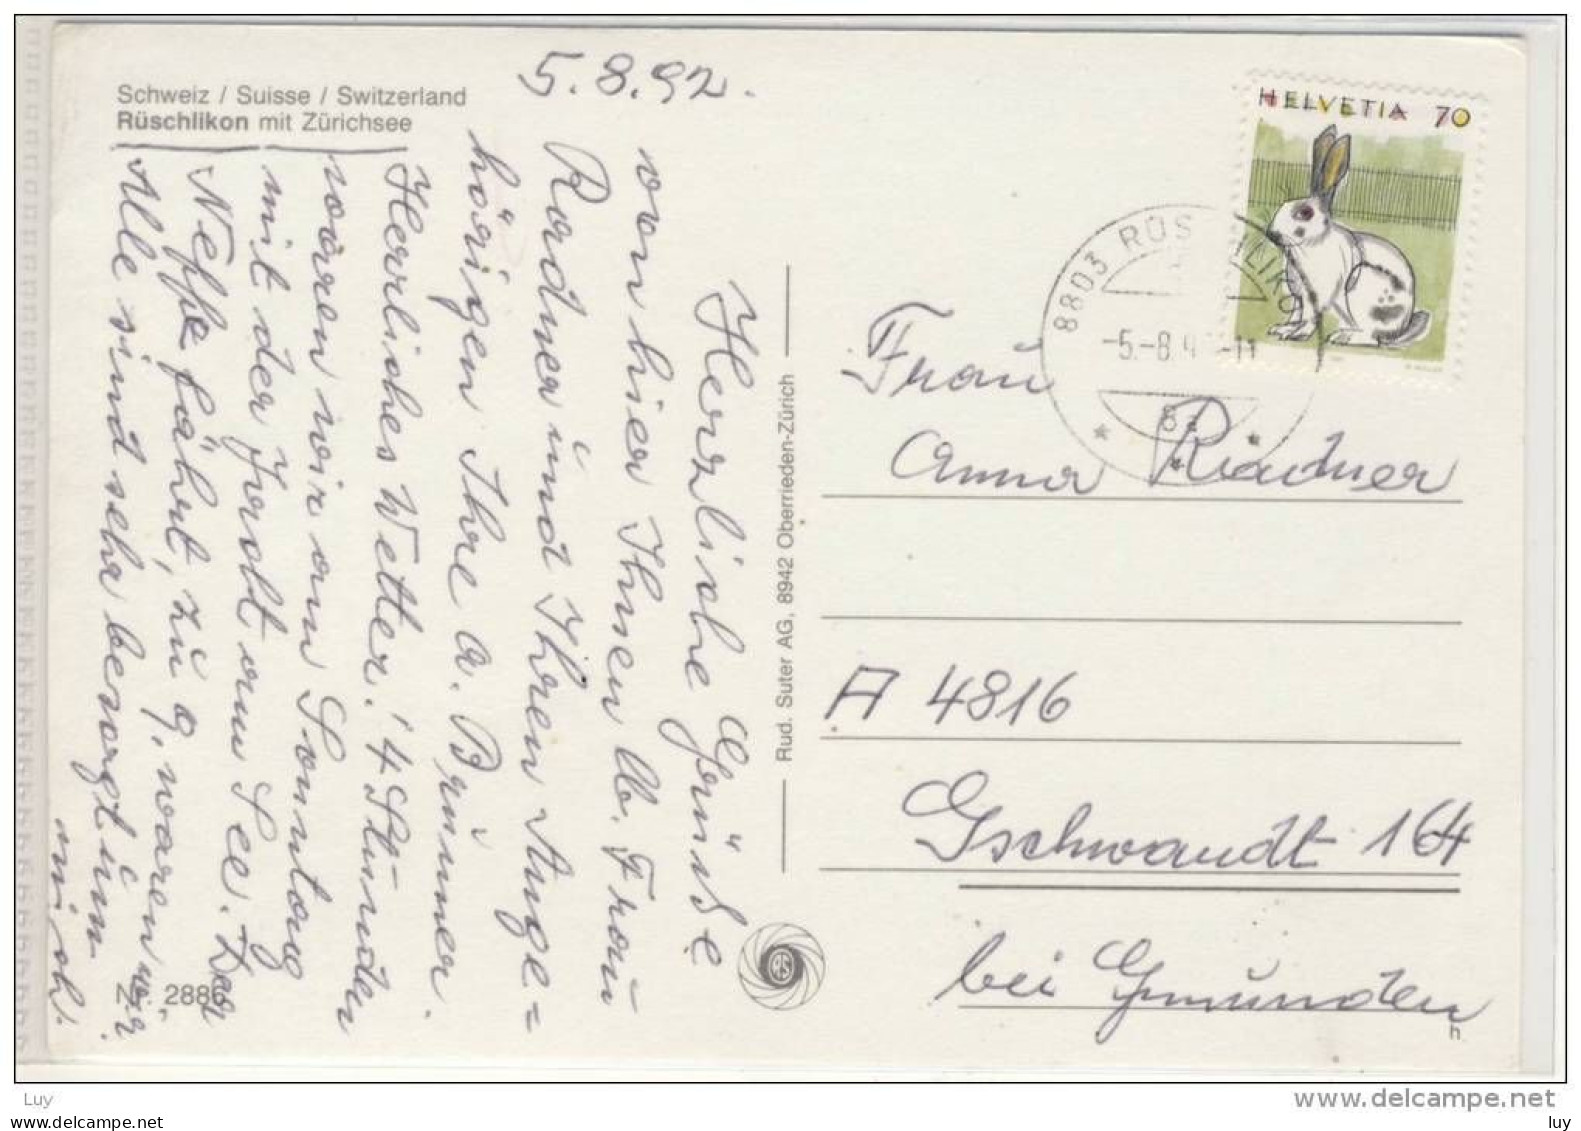 Schweiz / Suisse / Switzerland
Rüschlikon mit Zürichsee
5.8.92.
Herzliche Grüße
von hier Ihnen lb. Frau
Radner und Ihren Ange=
hörigen Ihre A. Brunner.
Herrliches Wetter! 4 Stunden
waren wir am Sonntag
mit der Jacht am See. Der
Neffe fährt, zu 9, waren wir.
Alle sind sehr besorgt um
mich.
Z 2886
Rud. Suter AG, 8942 Oberrieden-Zürich
HELVETIA 70
8803 RÜSCHLIKON
-5.-8. -11
Frau
Anna Radner
A 4816
Gschwandt 164
bei Gmunden
h
Luy
www.delcampe.net
www.delcampe.net
luy